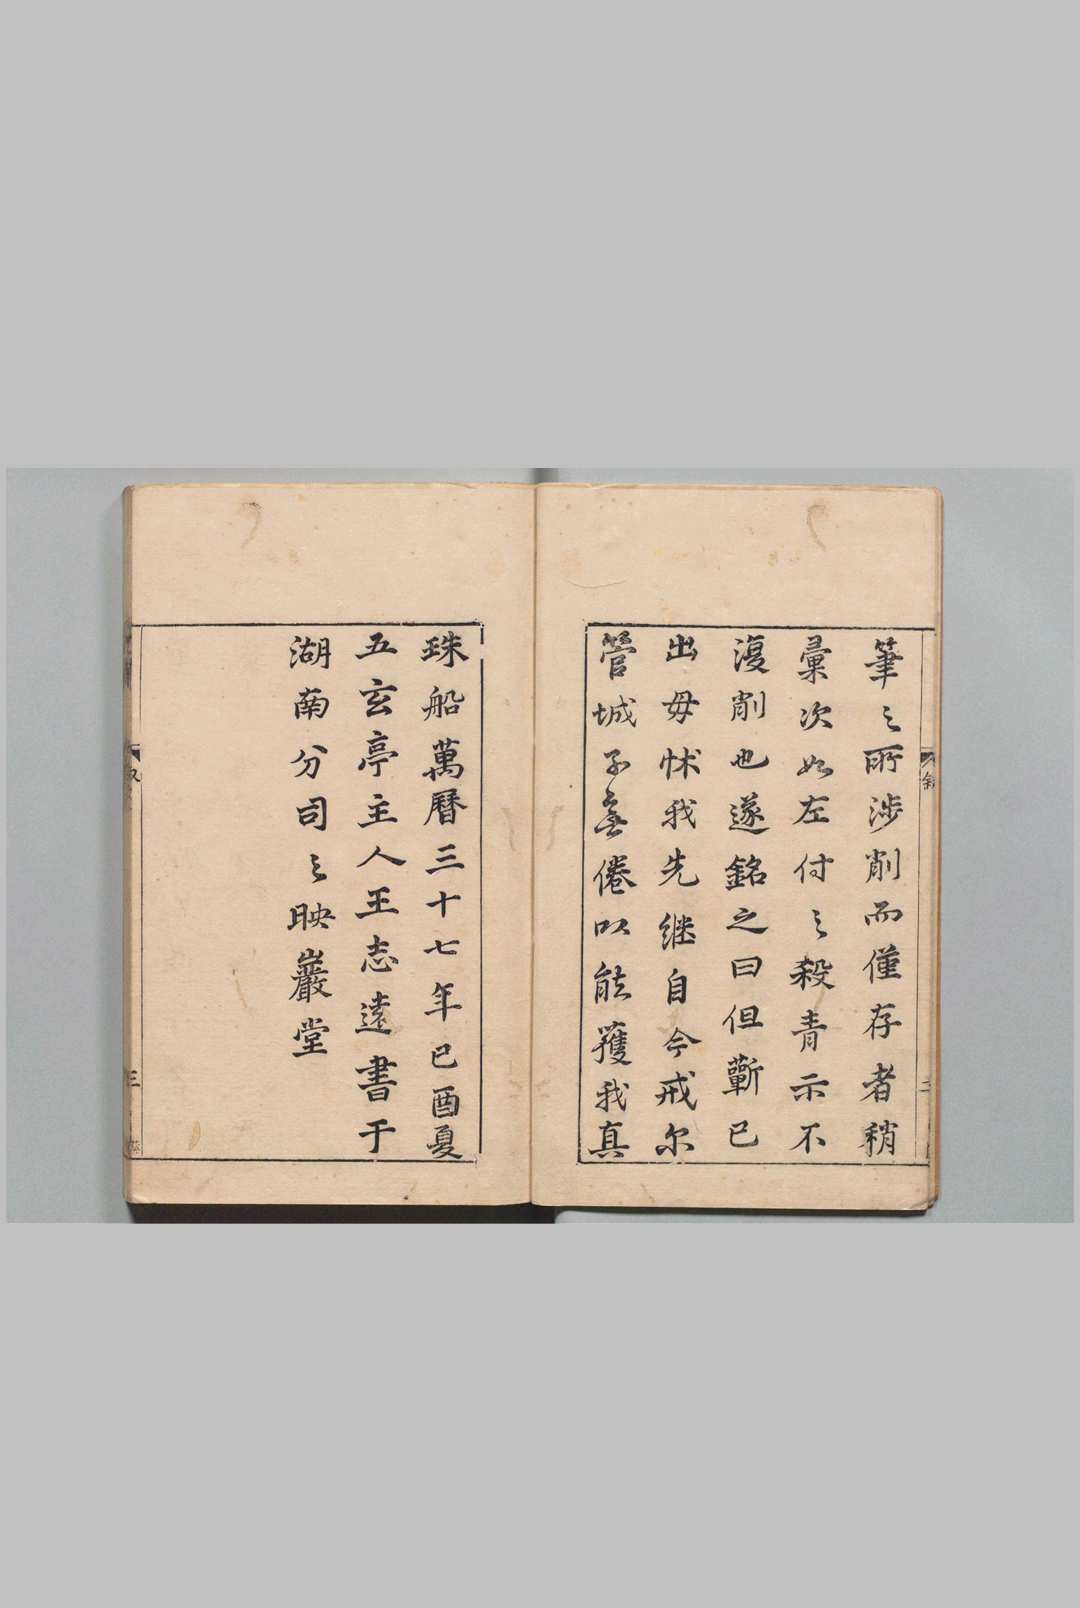 筆之所涉削而僅存者稍
彙次如左付之殺青示不
復削也遂銘之曰但蘄已
出毋怵我先継自今戒尔
管城子無倦以能獲我真
珠船萬曆三十七年已酉夏
五玄亭主人王志遠書于
湖南分司之映巖堂
叙
三